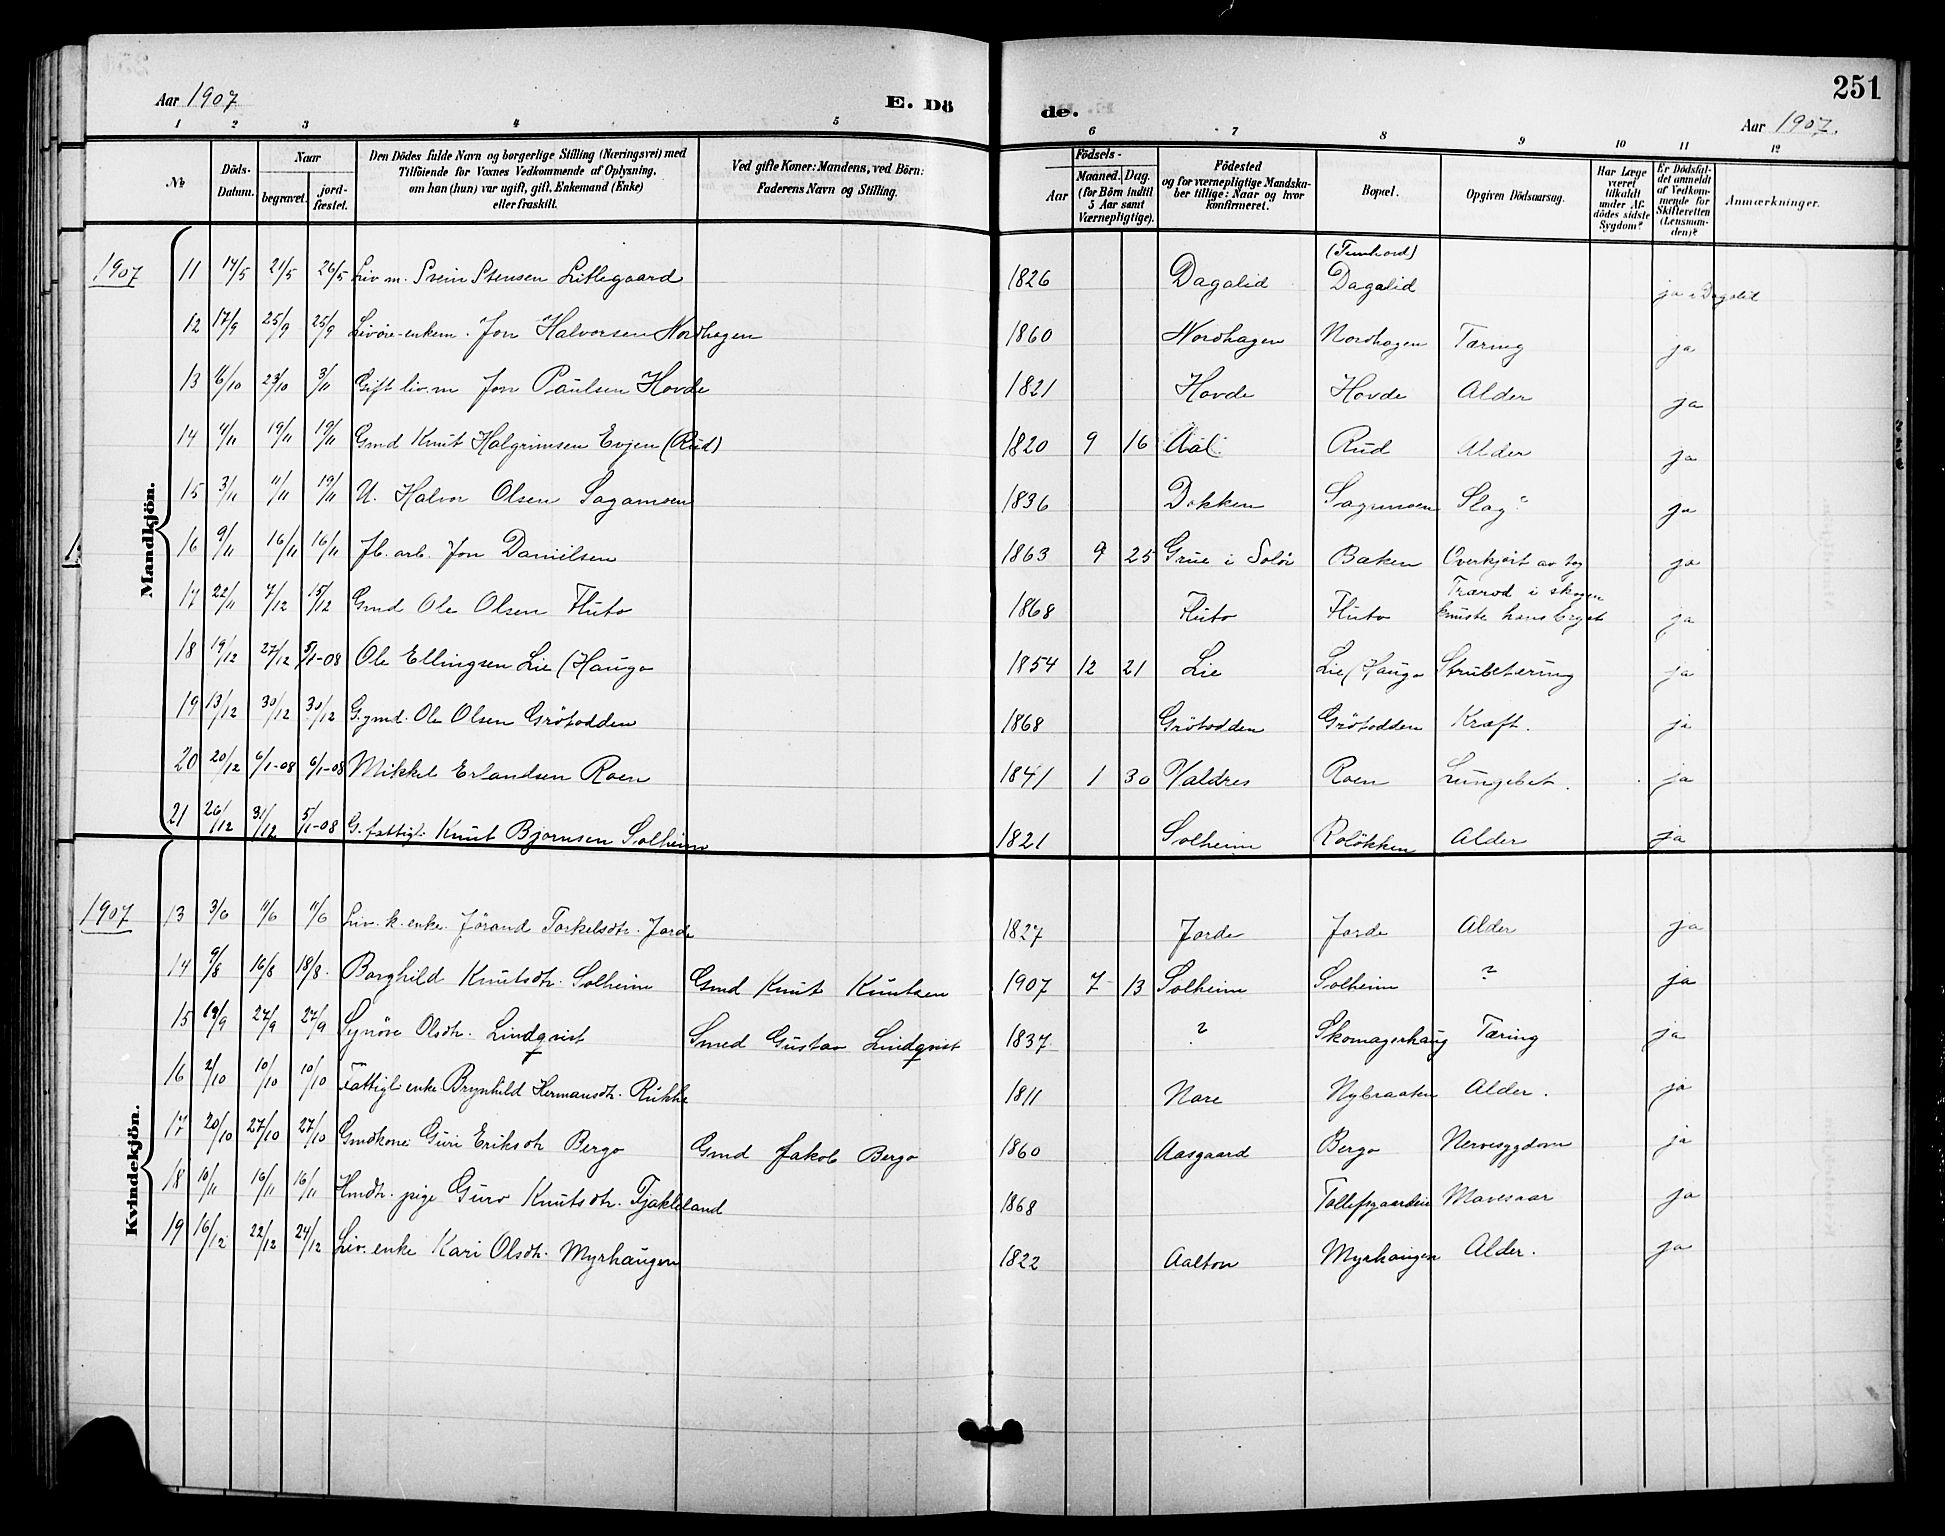 Aar 1907 E. Dö de. 251
Aar 1907.
1 2 3 4 5 6 7 8 9 10 11 12
No Döds-Datum. Naar begravet. jord-fæstet. Den Dödes fulde Navn og borgerlige Stilling (Næringsvei) med Tilföiende for Voxnes Vedkommende af Oplysning, om han (hun) var ugift, gift, Enkemand (Enke) eller fraskilt. Ved gifte Koner: Mandens, ved Börn: Faderens Navn og Stilling. Aar Födsels- Maaned. Dag. (for Börn indtil 5 Aar samt Værnepligtige). Födested og for værnepligtige Mandskaber tillige: Naar og hvor konfirmeret. Bopæl. Opgiven Dödsaarsag. Har Læge været tilkaldt under Afdödes sidste Sygdom? Er Dödsfaldet anmeldt af Vedkommende for Skifteretten (Lensmanden)? Anmærkninger.
Mandkjön.
1907 11 14/5 21/5 26/5 Liv m. Svein Stensen Litlegaard 1826 Dagalid Dagalid ja
12 17/9 25/9 25/9 Livöre-enkem. Jon Halvorsen Nordhagen 1860 Nordhagen Nordhagen Tæring ja
13 16/10 23/10 3/11 Gift liv.m Jon Paulsen Hovde 1821 Hovde Hovde Alder ja
14 4/11 19/11 19/11 Gmd Knut Halgrimsen Evjen (Rud) 1820 9 16 Aal Rud Alder ja
15 3/11 11/11 19/11 U. Halvor Olsen Sagamoen 1836 Dokken Sagmoen Slag ja
16 9/11 16/11 16/11 Jb. arb. Jon Danielsen 1863 9 25 Grue i Solör Baken Overkjört av tog ja
17 22/11 7/12 15/12 Gmd Ole Olsen Fluto 1868 Fluto Fluto Trærod i skogen knuste hans bryst ja
18 19/12 27/12 5/1-08 Ole Ellingsen Lie (Haugo 1854 12 21 Lie Lie (Haugo Strubetæring ja
19 13/12 30/12 30/12 G. gmd. Ole Olsen Grötodden 1868 Grötodden Grötodden Kræft. ja
20 20/12 6/1-08 6/1-08 Mikkel Erlandsen Roen 1841 1 30 Valdres Roen Lungebet. ja
21 26/12 31/12 5/1-08 G. fattigl. Knut Bjornsen Solheim 1821 Solheim Rolökken Alder ja
Kvindekjön.
1907 13 3/6 11/6 11/6 Liv. k. enke. Jörand Torkelsdtr. Jorde 1827 Jorde Jorde Alder ja
14 9/8 16/8 18/8. Borghild Knutsdtr. Solheim Gmd Knut Knutsen 1907 7 13 Solheim Solheim ? ja
15 19/9 27/9 27/9 Synöve Olsdtr. Lindqvist Smed Gustav Lindqvist 1837. ? Skomagerhaug Tæring ja
16 2/10 10/10 10/10 Fattigl. enke Brynhild Hermansdtr. Rukke 1811 Nare Nybraaten Alder. ja
17 20/10 27/10 27/10 Gmdkone Guri Eriksdtr Bergo Gmd Jakob Bergo 1860 Aasgaard Bergo Nervesygdom ja
18 10/11 16/11 16/11 Hmdtr. pige Guro Knutsdtr. Tjakleland 1868 Tollefsgaardeie Mavesaar ja
19 16/12 22/12 24/12 Liv. enke Kari Olsdtr. Myrhaugen 1822 Aalton Myrhaugen Alder. ja